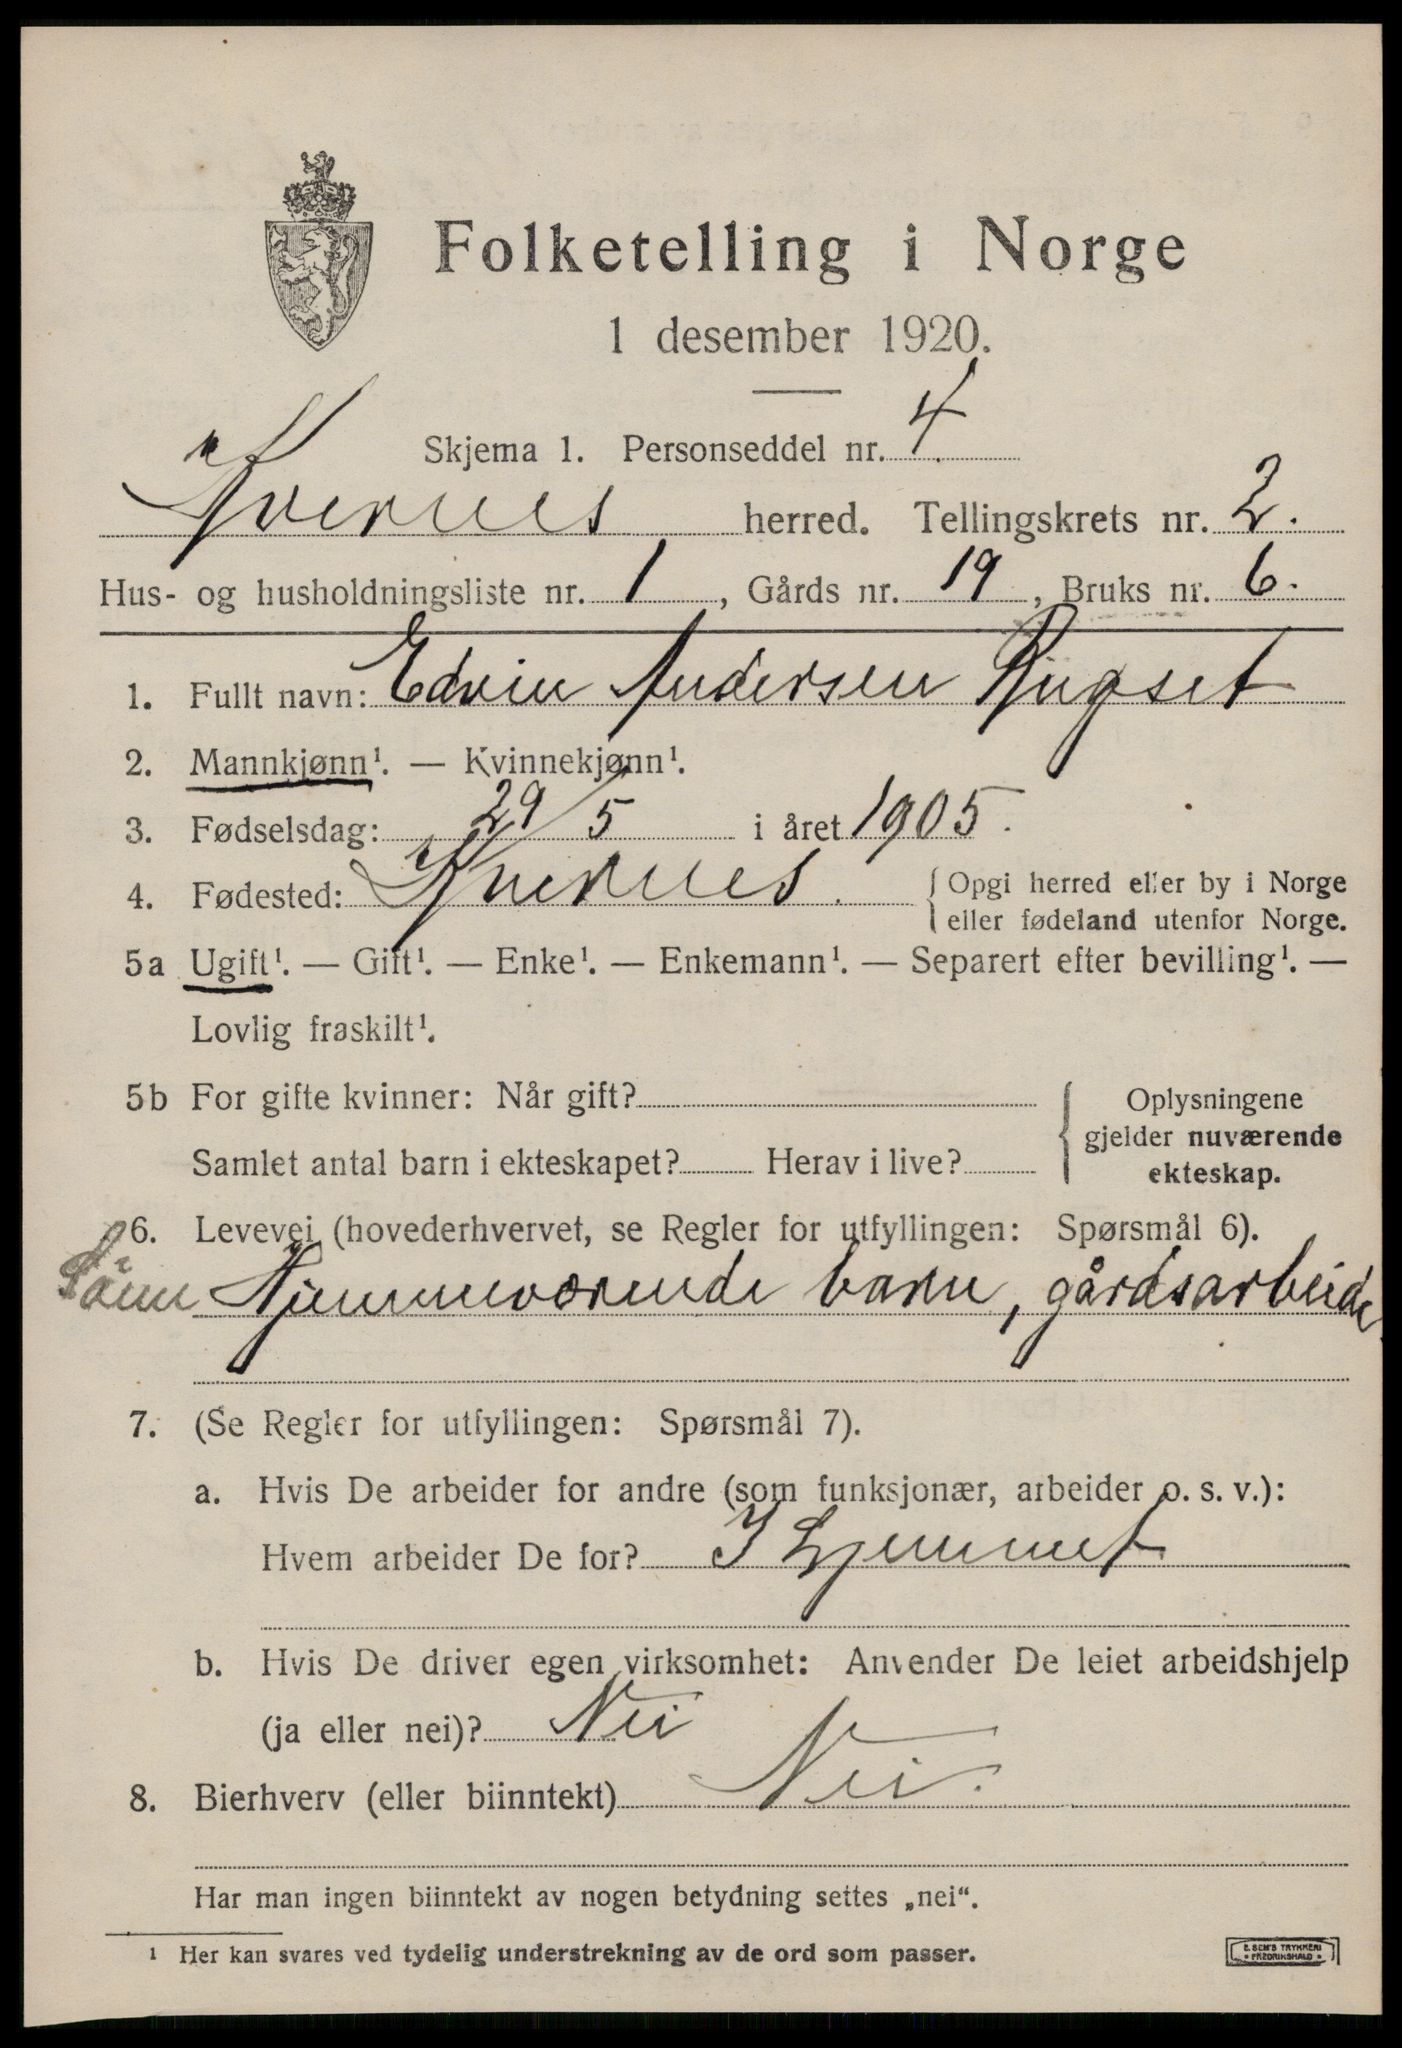 Folketelling i Norge
1 desember 1920.
Skjema 1. Personseddel nr. 4.
Kvernes herred. Tellingskrets nr. 2.
Hus- og husholdningsliste nr. 1, Gårds nr. 19, Bruks nr. 6.
1. Fullt navn: Edvin Andersen Rugset
2. Mannkjønn¹. — Kvinnekjønn¹.
3. Fødselsdag: 29/5 i året 1905.
4. Fødested: Kvernes. { Opgi herred eller by i Norge
eller fødeland utenfor Norge.
5a Ugift¹. — Gift¹. — Enke¹. — Enkemann¹. — Separert efter bevilling¹. —
Lovlig fraskilt¹.
5b For gifte kvinner: Når gift?
Samlet antal barn i ekteskapet? Herav i live?
{ Oplysningene
gjelder nuværende
ekteskap.
6. Levevei (hovederhvervet, se Regler for utfyllingen: Spørsmål 6).
Sönn Hjemmeværende barn, gårdsarbeide
7. (Se Regler for utfyllingen: Spørsmål 7).
a. Hvis De arbeider for andre (som funksjonær, arbeider o. s. v.):
Hvem arbeider De for? I hjemmet
b. Hvis De driver egen virksomhet: Anvender De leiet arbeidshjelp
(ja eller nei)? Nei
8. Bierhverv (eller biinntekt) Nei.
Har man ingen biinntekt av nogen betydning settes „nei“.
¹ Her kan svares ved tydelig understrekning av de ord som passer.
E. SEM'S TRYKKERI
• FREDRIKSHALD •